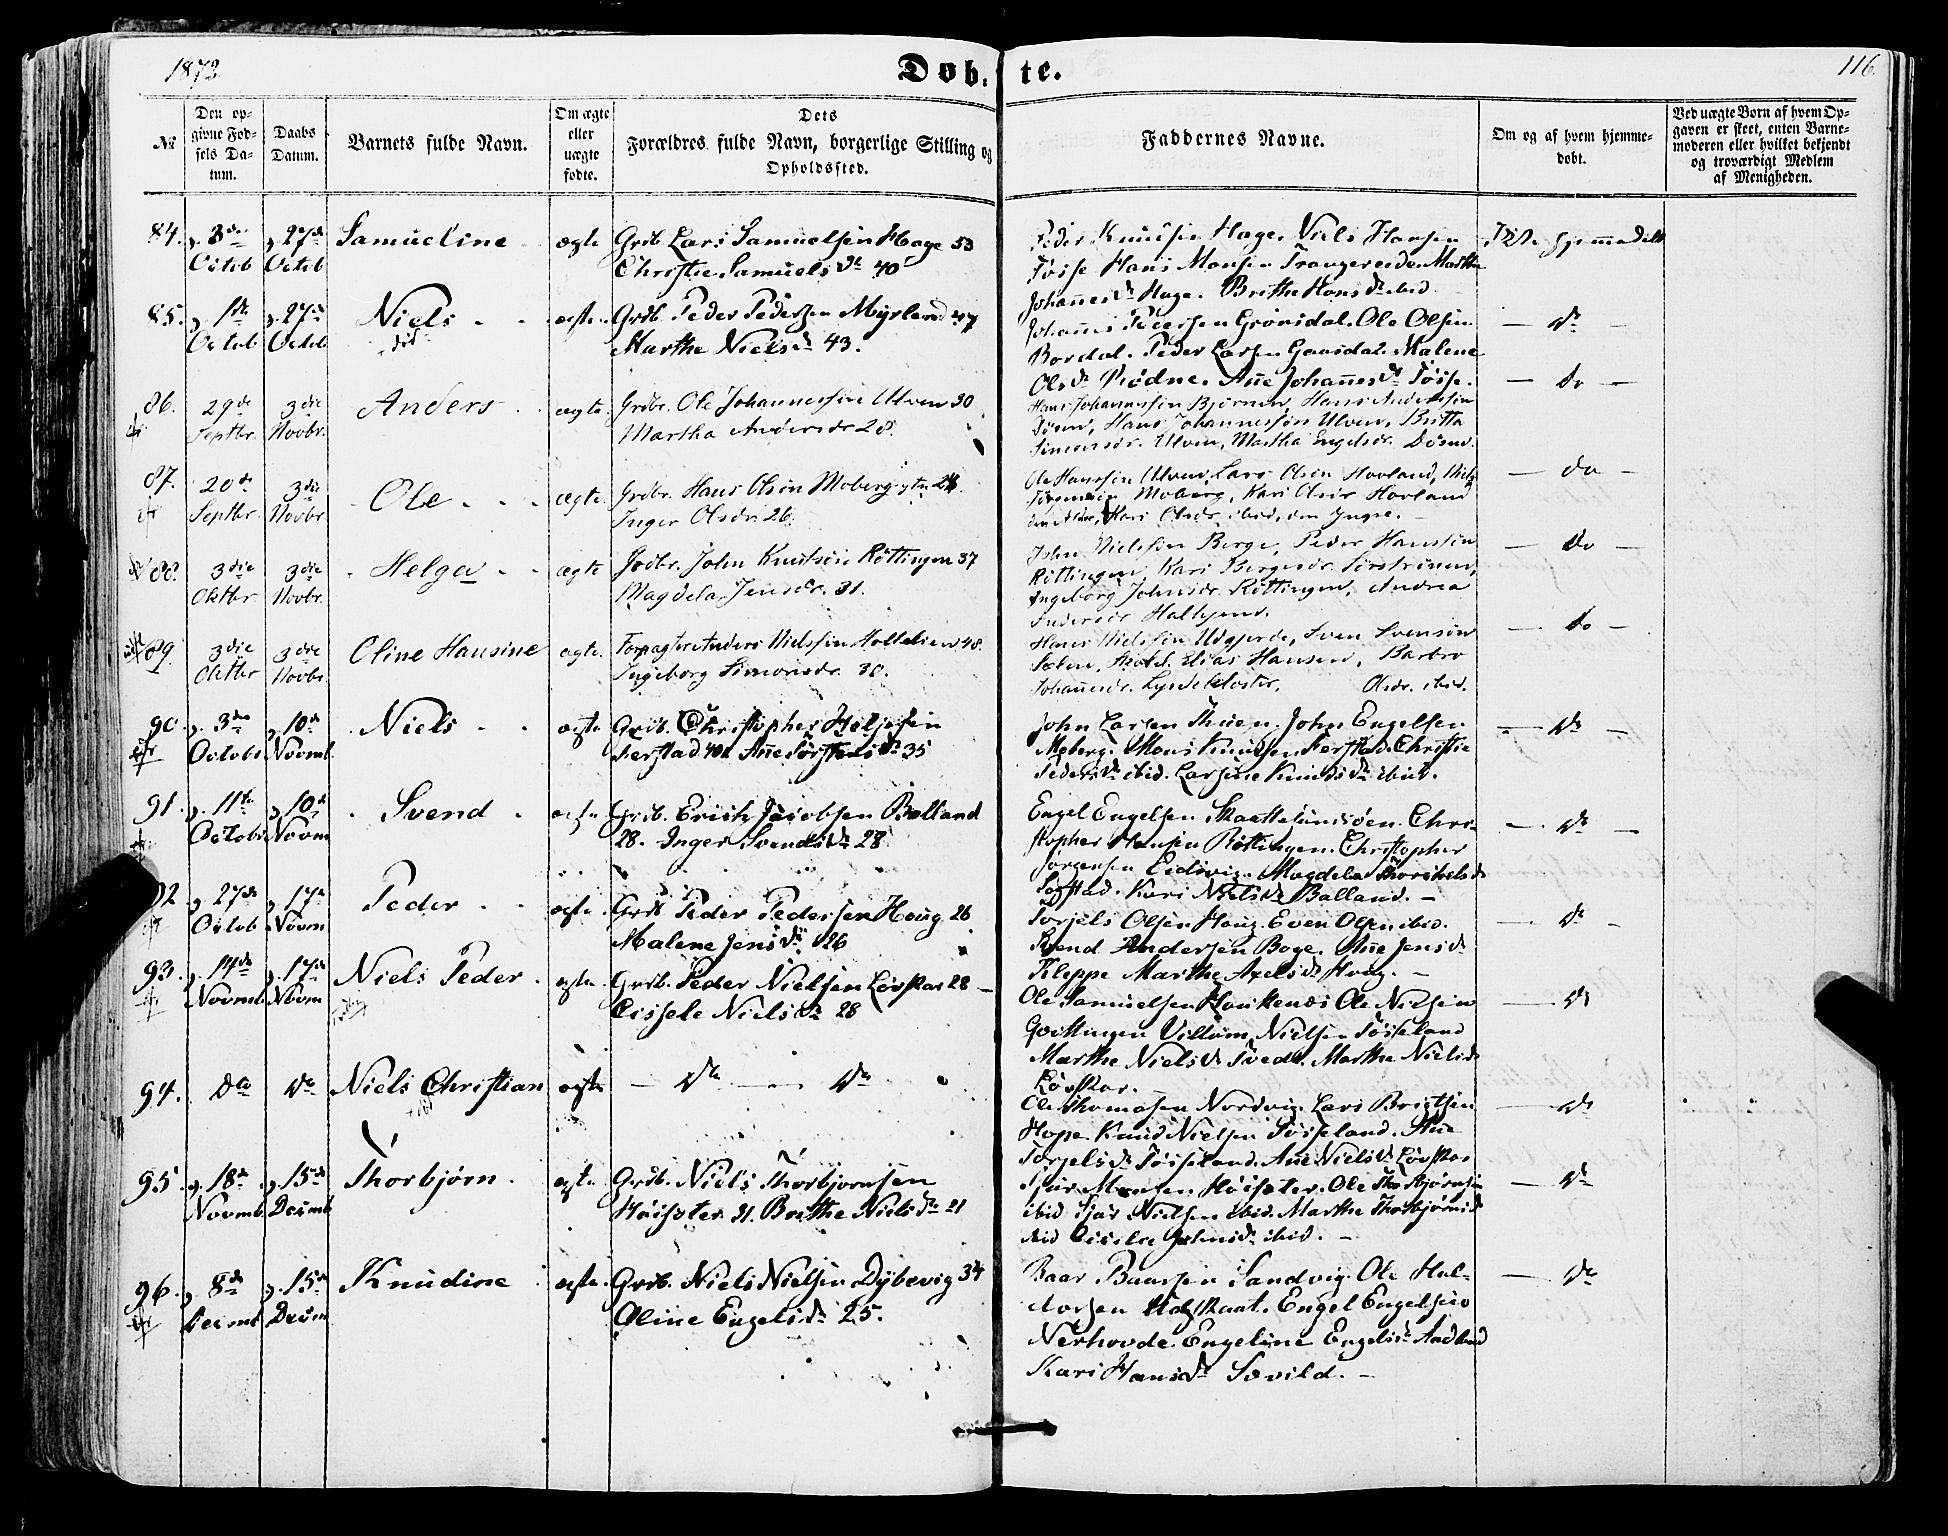 1872.
Døb-te.
116.
No
Den op-
givne Fød-
sels Da-
tum.
Daabs
Datum.
Barnets fulde Navn.
Om ægte
eller
uægte
fødte.
Dets
Forældres fulde Navn, borgerlige Stilling og
Opholdssted.
Faddernes Navne.
Om og af hvem hjemme-
døbt.
Ved uægte Børn af hvem Op-
gaven er skeet, enten Barne-
moderen eller hvilket bekjendt
og troværdigt Medlem
af Menigheden.
84. 27de Samueline ægte Grdb. Lars Samuelsen Hage 53
Octob Octob Christie Samuelsdr 40
Peder Knudsen Hage. Niels Hansen
Tøsse Hans Monsen Trangereide. Marthe
Johannesdr Hage. Brithe Hansdr ibid
Ikke hjemmedøbt
85. 1ste 27de Niels ægte Grdb. Peder Pedersen Myrland 47
Octob Octob Marthe Nielsdr 43.
Johannes Pedersen Grønsdal. Ole Olsen
Bordal. Peder Larsen Gaasdal. Malene
Olsdr Rødne. Ane Johannesdr Tøsse.
Do
86. 29de 3die Anders ægte Grdbr. Ole Johannessen Ulven 30
Septbr. Novbr. Martha Andersdr 28.
Hans Johannessen Bjørnen, Hans Anderssen
Hans Johannessen Ulven, Britta
Simonsdr. Ulven, Martha Engelsdr.
Do
87. 20de 3die Ole ægte Grdbr. Hans Olsen Moberg
Septbr Novbr Inger Olsdr 26.
Ole Hanssen Ulven, Lars Olsen Hovland,
Moberg, Kari Olsdr Hovland
Kari Olsdr. ibid, den Yngre.
do
88. 3die 3die Helga ægte Grdbr. John Knutsen Røttingen 37
Oktbr Novbr. Magdela Jensdr. 31.
John Nielssen Berge, Peder Hanssen
Røttingen, Kari Bergesdr.
Ingeborg Johnsdr. Røttingen, Andrea
Andersdr Haltjem.
Do
89. 3die 3die Oline Hansine ægte. Forpagter Anders Nielssen 48.
Oktbr Novbr. Ingeborg Simonsdr. 30.
Hans Nielssen Udgjerde, Sven Svensen
Elias Hansen, Barbro
Johannesdr. Lysekloster, Olsdr. ibid.
Do
90. 3die 10de Niels ægte Grdb. Christopher Heljesen
Octobr Novmb. Ferstad 40 Ane Torstensdr 35
John Larsen Thuen. John Engelsen
Moberg. Mons Knudsen Ferstad. Christie
Pedersdr ibid. Larsine Knudsdr ibid.
Do
91. 11te 10de Svend ægte Grdb. Erich Jacobsen Balland
Octobr Novm 28. Inger Svendsdr 28
Engel Engelsen Skaattesundsøen. Chri-
stopher Hansen Røttingen. Christopher
Jørgensen Eidsvig. Magdela
Kari Nielsdr Balland.
Do
92 27de 17de Peder ægte Grdb Peder Pedersen Houg 26
Octob Novm Malene Jensdr 26
Torjels Olsen Houg. Even Olsen ibid.
Svend Andersen Boge. Ane Jensdr
Kleppe Marthe Axelsdr Houg.
Do
93. 14de 17de Niels Peder ægte Grdb. Peder Nielsen Løvskar 28
Novmb Novm Cissele Nielsdr 28
Ole Samuelsen Haukenæs Ole Nielsen
Villum Nielsen Tøsseland
Marthe Nielsdr Tvedt. Marthe Nielsdr
Løvskar.
Do
94. do do Niels Christian ægte Do Do
Ole Thomasen Nordvig. Lars Brigtsen
Hope. Knud Nielsen Tøsseland.
Torjelsdr Tøsseland. Ane Nielsdr Løvskar
Do
95. 18de 15de Thorbjørn ægte Grdb. Niels Thorbjørnsen
Novmb Decmb Høisæter 31. Brithe Nielsdr 21
Monsen Høisæter. Ole Thorbjørnsen
ibid Nielsen ibid. Marthe Thorbjørnsdr
ibid Johnsdr ibid.
Do
96. 8de 15de Knudine ægte Grdb. Niels Nielsen Dybevig 34
Decmb Decm Oline Engelsdr 25.
Baar Baarsen Sandvig. Ole Hal-
vorsen Engel Engelsen
Nerhovde. Engeline Engelsdr
Kari Hansdr Søvild.
Do